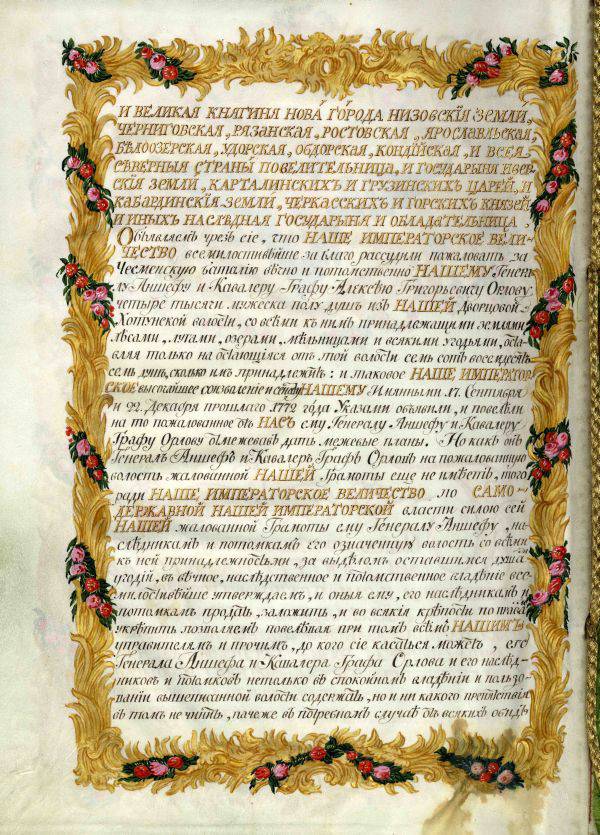 И ВЕЛИКАЯ КНЯГИНЯ НОВА ГОРОДА НИЗОВСКІЯ ЗЕМЛИ,
ЧЕРНИГОВСКАЯ, РЯЗАНСКАЯ, РОСТОВСКАЯ, ЯРОСЛАВЛЬСКАЯ,
БѢЛООЗЕРСКАЯ, УДОРСКАЯ, ОБДОРСКАЯ, КОНДІЙСКАЯ, И ВСЕЯ
СѢВЕРНЫЯ СТРАНЫ ПОВЕЛИТЕЛЬНИЦА, И ГОСУДАРЫНЯ ИВЕР-
СКІЯ ЗЕМЛИ, КАРТАЛИНСКИХЪ И ГРУЗИНСКИХЪ ЦАРЕЙ, И
КАБАРДИНСКІЯ ЗЕМЛИ, ЧЕРКАССКИХЪ И ГОРСКИХЪ КНЯЗЕЙ
И ИНЫХЪ НАСЛѢДНАЯ ГОСУДАРЫНЯ И ОБЛАДАТЕЛЬНИЦА,
Объявляемъ чрезъ сіе, что НАШЕ ИМПЕРАТОРСКОЕ ВЕЛИ-
ЧЕСТВО всемилостивѣйше за благо разсудили пожаловать за
Чесменскую баталію вѣчно и потомственно НАШЕМУ Генера-
лу Аншефу и Кавалеру Графу Алексѣю Григорьевичу Орлову
четыре тысячи мужеска полу душъ изъ НАШЕЙ Дворцовой
Хотунской волости, со всѣми къ нимъ принадлежащими землями
лѣсами, лугами, озерами, мѣльницами и всякими угодьями, оста-
вляя только на остающіяся отъ той волости семь сотъ восемьдесятъ
семь душъ, сколько имъ принадлежитъ: и таковое НАШЕ ИМПЕРАТОР-
СКОЕ высочайшее соизволеніе НАШЕМУ Имянными 17. Сентября
и 22. Декабря прошлаго 1772 года Указами объявили, и повелѣли
на то пожалованное отъ НАСЪ ему Генералу Аншефу и Кавалеру
Графу Орлову отмежевавъ дать межевые планы. Но какъ онъ
Генералъ Аншефъ и Кавалеръ Графъ Орловъ на пожалованную
волость жалованной НАШЕЙ Грамоты еще не имѣетъ, того
ради НАШЕ ИМПЕРАТОРСКОЕ ВЕЛИЧЕСТВО по САМО-
ДЕРЖАВНОЙ НАШЕЙ ИМПЕРАТОРСКОЙ власти силою сей
НАШЕЙ жалованной Грамоты ему Генералу Аншефу, на-
слѣдникамъ и потомкамъ его означенную волость со всѣми
къ ней принадлежностьми, за выдѣломъ оставшимся душамъ
угодій, въ вѣчное, наслѣдственное и потомственное владѣніе все-
милостивѣйше утверждаемъ, и оныя ему, его наслѣдникамъ и
потомкамъ продать, заложить, и во всякія крѣпости по
укрѣпить позволяемъ повелѣвая при томъ всѣмъ НАШИМЪ
управителямъ и прочимъ, до кого сіе касаться можетъ, его
Генерала Аншефа и Кавалера Графа Орлова и его наслѣд-
никовъ и потомковъ нетолько въ спокойномъ владѣніи и пользо-
ваніи вышеписанной волости содержать, но и ни какого препятствія
въ томъ не чинить, паче же въ потребномъ случаѣ отъ всякихъ обидъ